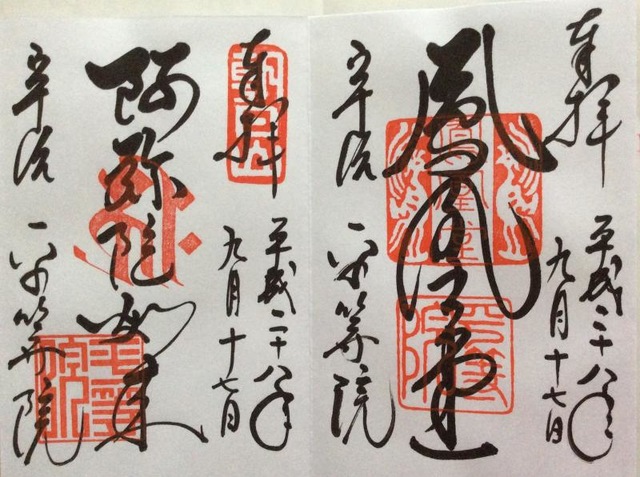 奉拝
平成二十八年
九月十七日
鳳凰堂
宇治
平等院
奉拝
朝日山
平成二十八年
九月十七日
阿弥陀如来
宇治
平等院